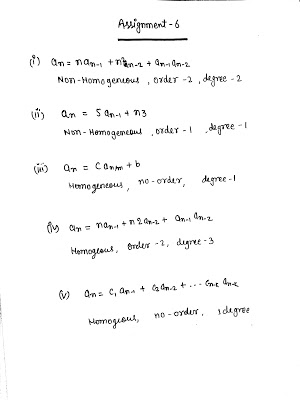 Assignment-6
(i) an = nan-1 + n²an-2 + an-1an-2
Non-Homogeneous, order-2, degree-2
(ii) an = 5an-1 + n3
Non-Homogeneous, order-1, degree-1
(iii) an = Can/m + b
Homogeneous, no-order, degree-1
(iv) an = nan-1 + n2an-2 + an-1an-2
Homogeous, order-2, degree-3
(v) an = C1an-1 + C2an-2 + ... Cn-k an-k
Homogeious, no-order, 1degree